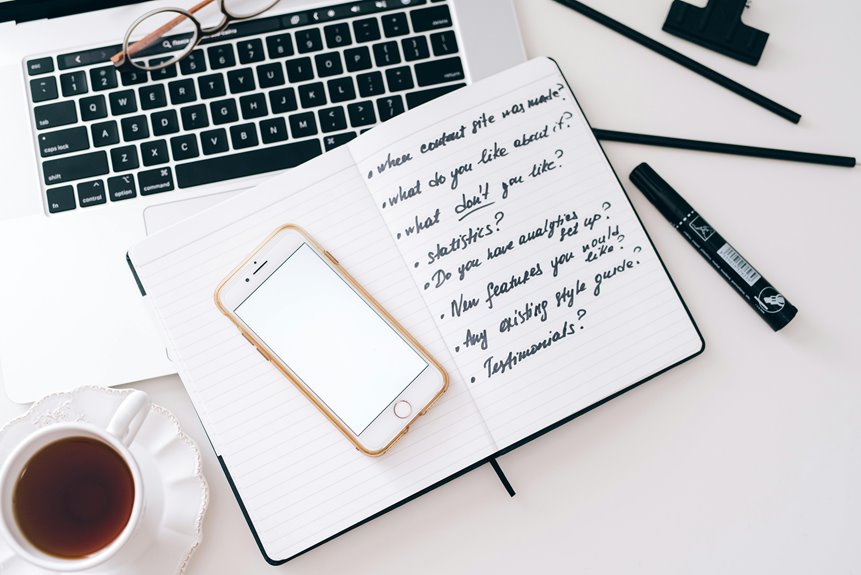 • when content site was made?
• what do you like about it?
• what don't you like?
• statistics?
• Do you have analytics set up?
• New features you would like?
• Any existing style guide?
• Testimonials?
tab
caps lock
shift
fn
control
option
command
1
2
3
4
5
6
7
8
9
0
Q
W
E
R
T
Y
U
I
O
P
A
S
D
F
G
H
J
K
L
Z
X
C
V
B
N
M